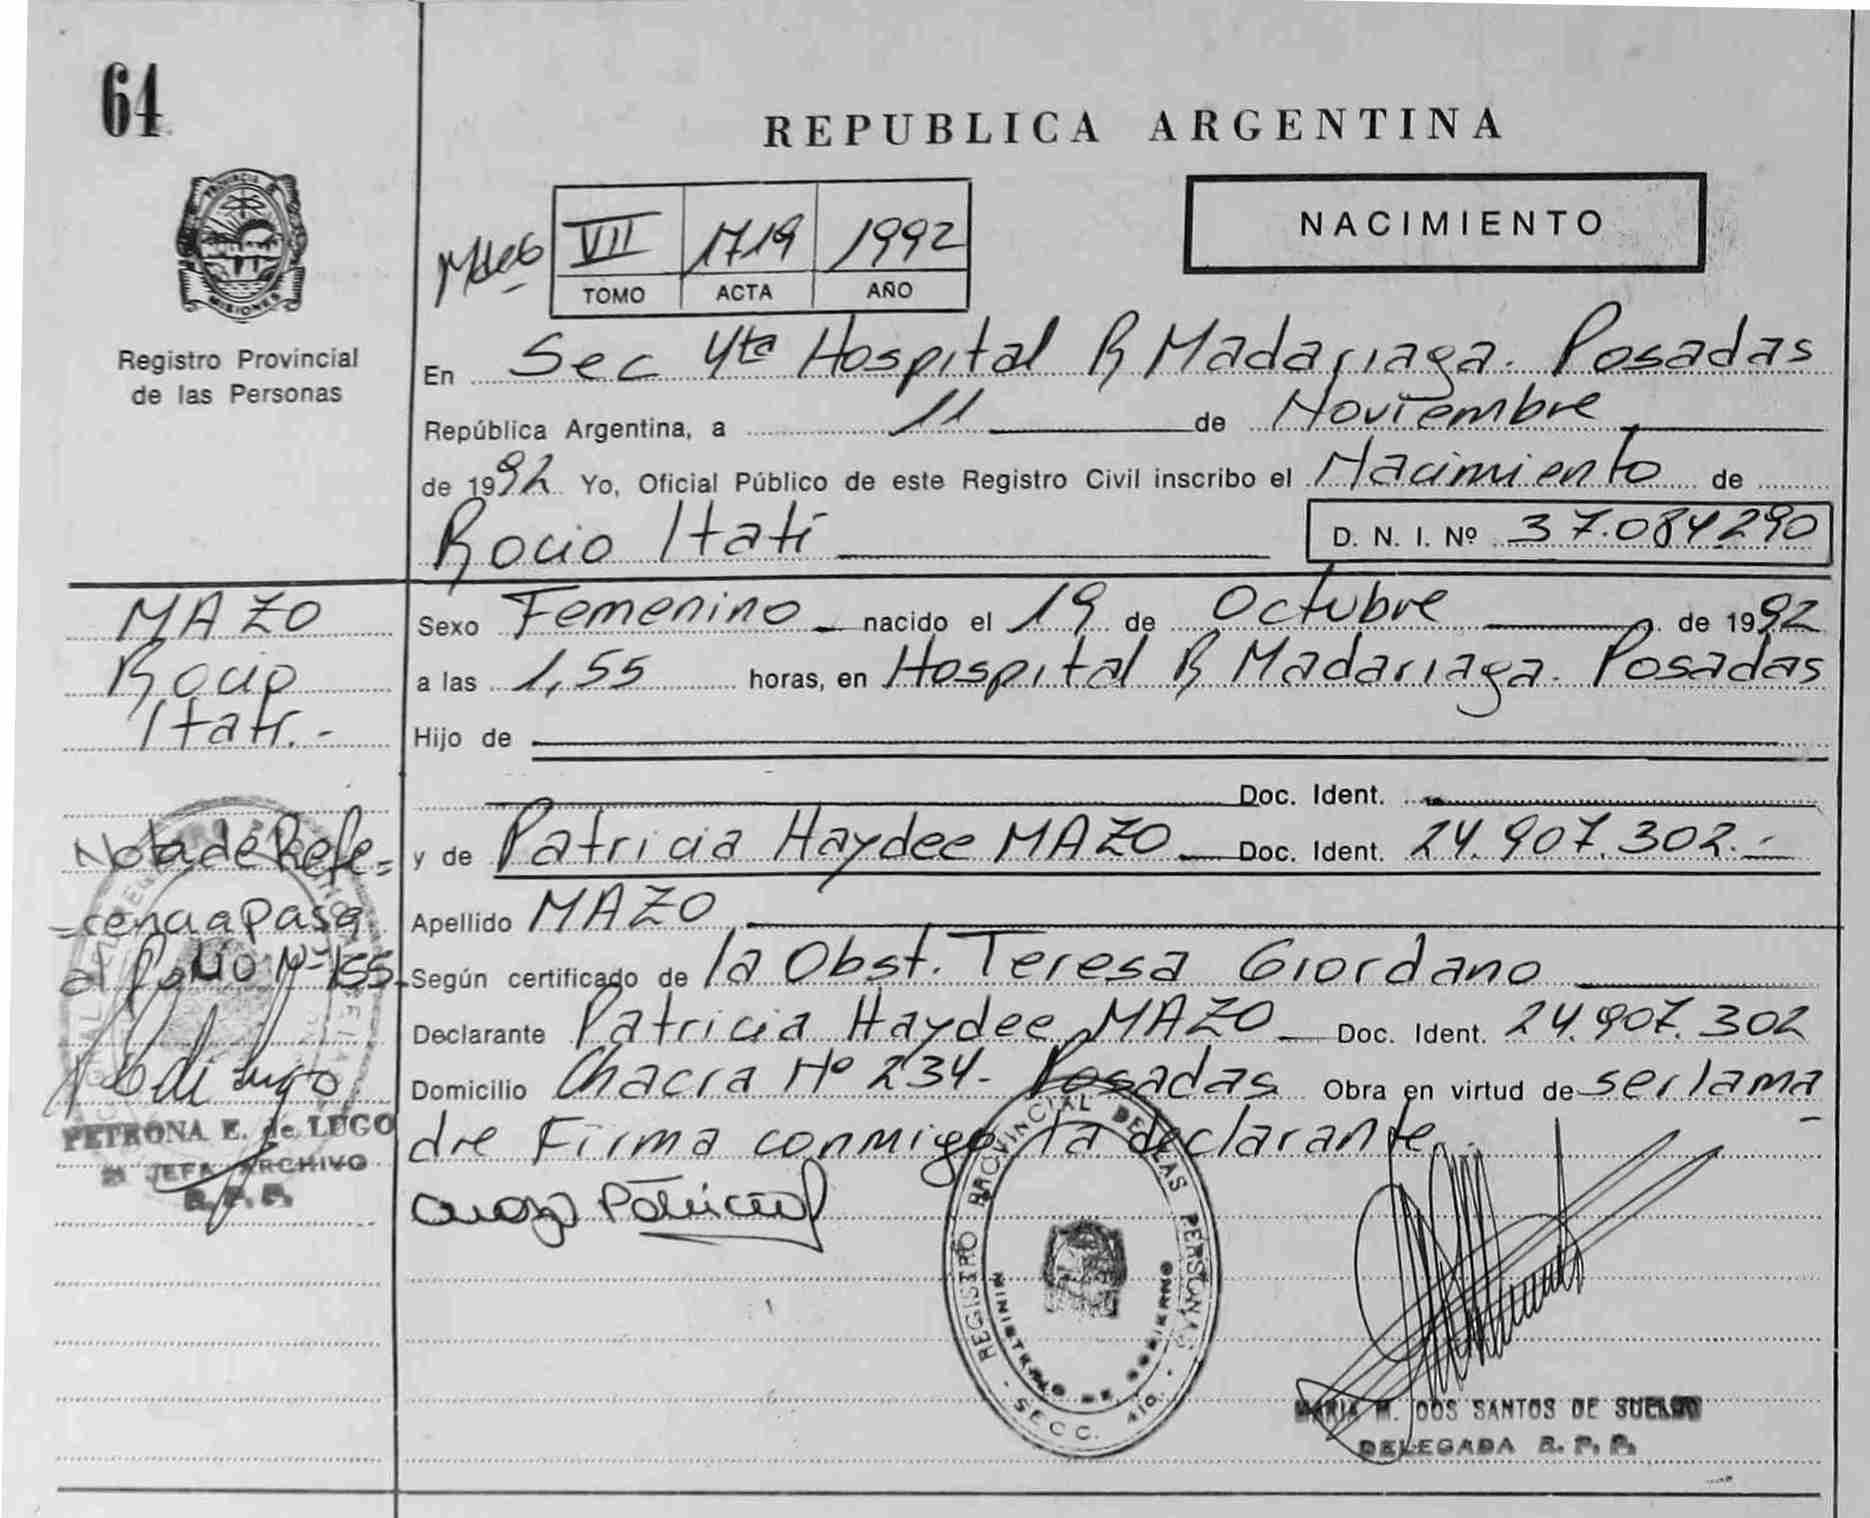 64
REPUBLICA ARGENTINA
PROVINCIA DE
MISIONES
Registro Provincial
de las Personas
VII 1719 1992
TOMO ACTA AÑO
NACIMIENTO
En Sec 4ta Hospital R Madariaga. Posadas
República Argentina, a 11 de Noviembre
de 1992 Yo, Oficial Público de este Registro Civil inscribo el Nacimiento de
Rocio Itatí D. N. I. Nº 37.084.290
MAZO
Rocio
Itatí.-
Sexo Femenino nacido el 19 de Octubre de 1992
a las 1,55 horas, en Hospital R Madariaga. Posadas
Hijo de
Doc. Ident.
y de Patricia Haydee MAZO Doc. Ident. 24.907.302.-
Apellido MAZO
Según certificado de la Obst. Teresa Giordano
Declarante Patricia Haydee MAZO Doc. Ident. 24.907.302
Domicilio Chacra Nº 234- Posadas Obra en virtud de ser la ma
dre Firma conmigo la declarante.
Nota de Refe=
=rencia pasa
al Folio Nº 155
PETRONA E. de LUGO
JEFA ARCHIVO
R. P. P.
REGISTRO PROVINCIAL DE LAS PERSONAS
MINISTERIO DE GOBIERNO
SECC. 4ta.
MARIA M. DOS SANTOS DE SUELDO
DELEGADA R. P. P.